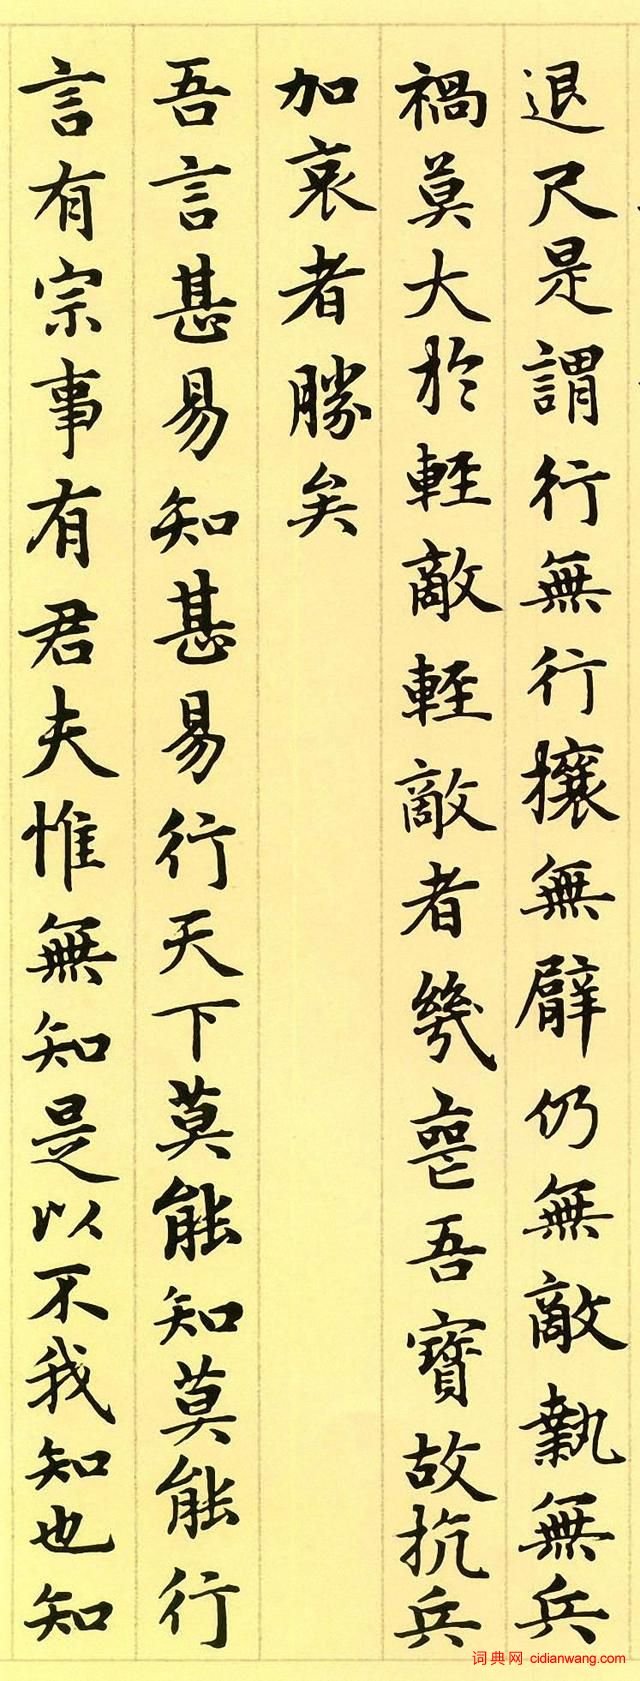 退尺是謂行無行攘無臂仍無敵執無兵
禍莫大於輕敵輕敵者幾喪吾寶故抗兵
加哀者勝矣
吾言甚易知甚易行天下莫能知莫能行
言有宗事有君夫惟無知是以不我知也知
词典网 cidianwang.com